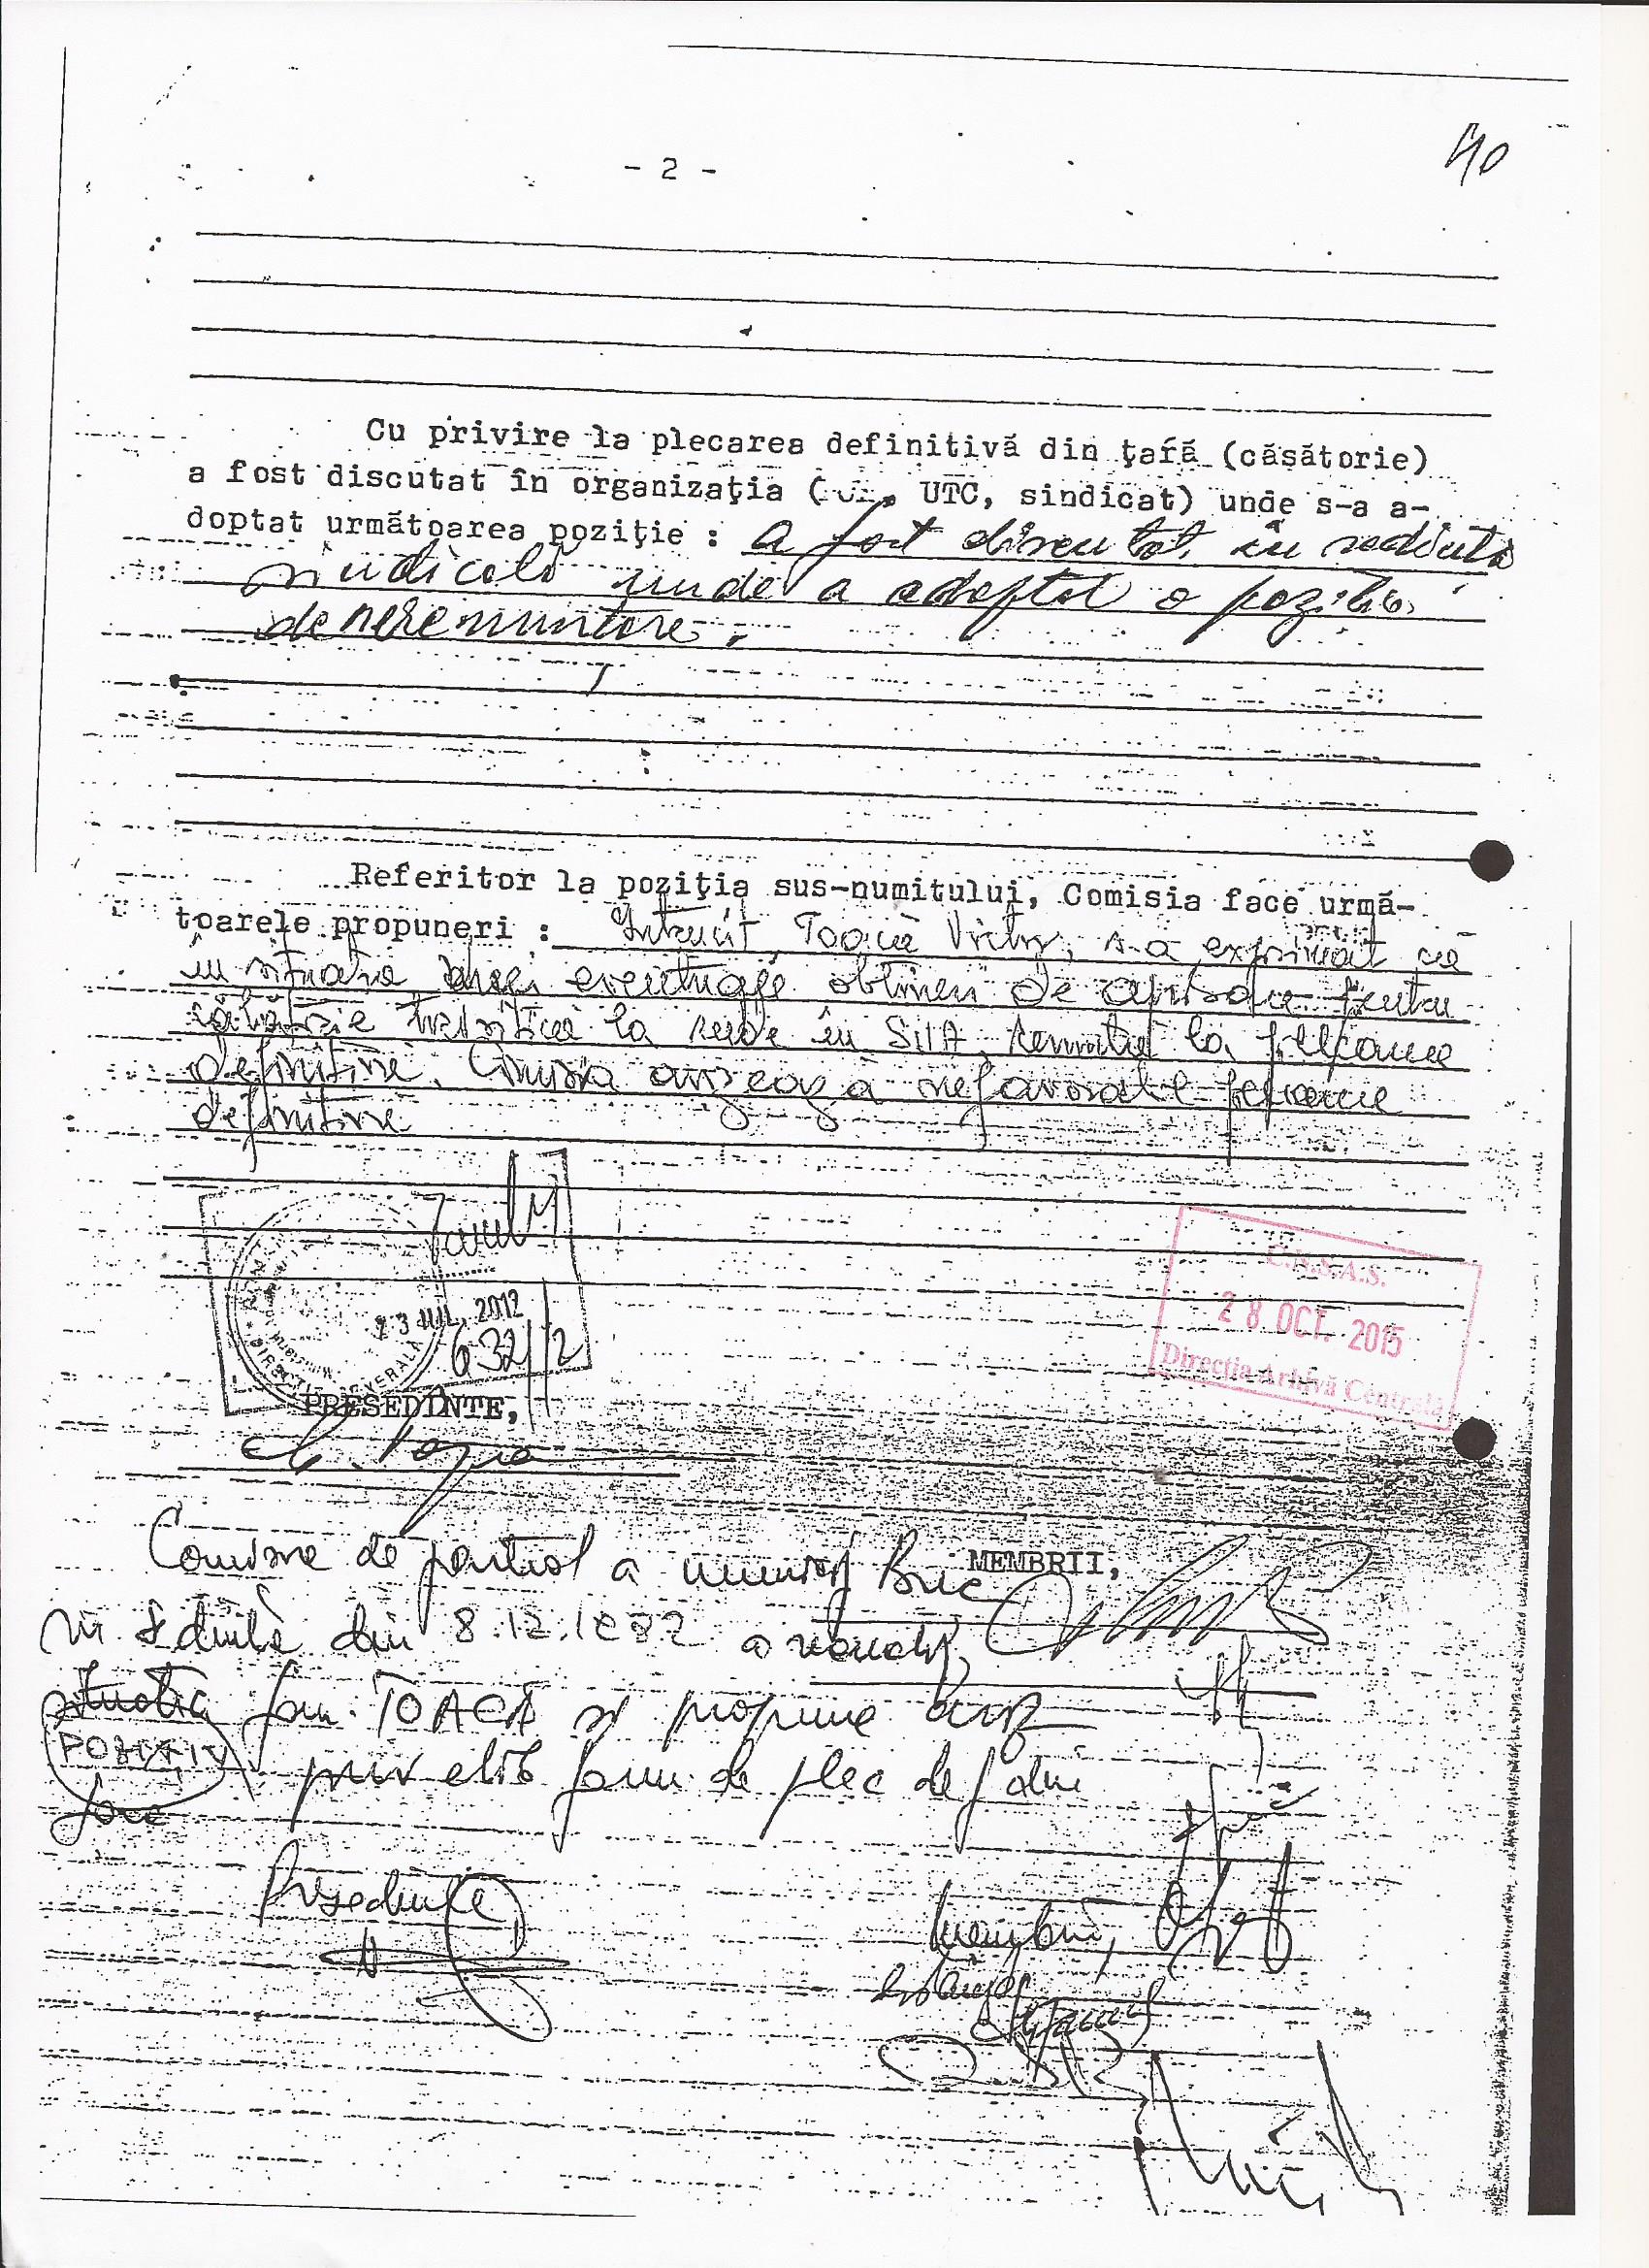 - 2 -
40
Cu privire la plecarea definitivă din ţară (căsătorie)
a fost discutat în organizaţia ( , UTC, sindicat) unde s-a a-
doptat următoarea poziţie : a fost discutat în sedinta
sindicală unde a adoptat o poziti
de nerenuntare.
Referitor la poziţia sus-numitului, Comisia face urmă-
toarele propuneri : Întrucît Toaca Victor, s-a exprimat ca
în situatia unei eventuale obtineri de aprobare pentru
călătorie turistica la rude în SUA, renunta la plecarea
definitiva. Comisia avizează nefavorabil plecarea
definitiva
23 IUL. 2012
632/12
C.N.S.A.S.
28 OCT. 2015
Direcţia Arhivă Centrală
PRESEDINTE,
Comisia de partid a municip Buc
MEMBRII,
în sedinta din 8.12.1982 a
situatia fam. TOACA si propune aviz
POZITIV
priv elib form. de plec def din
Presedinte
Membri,